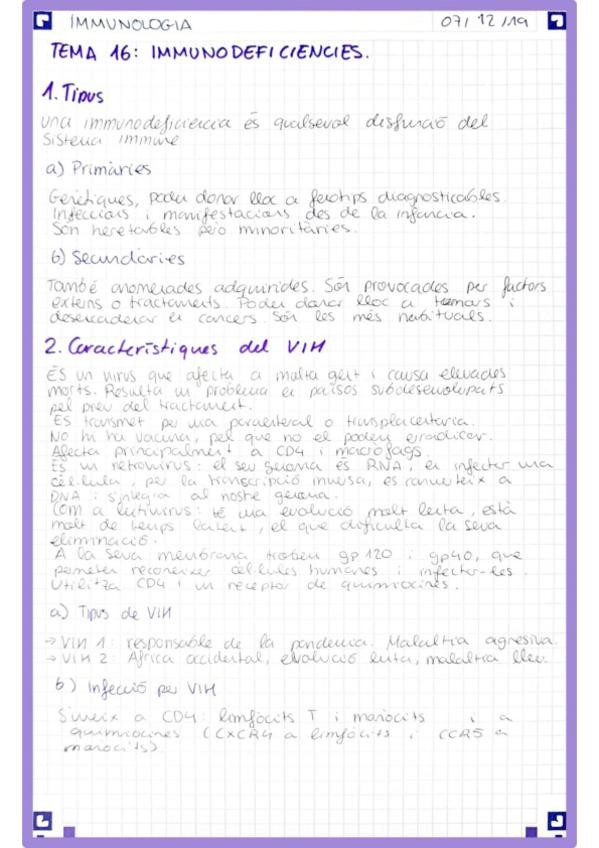 IMMUNOLOGIA 07/12/19
TEMA 16: IMMUNODEFICIENCIES.
1. Tipus
Una immunodeficiencia és qualsevol disfunció del
Sistema immune
a) Primàries
Genètiques, poden donar lloc a fenotips diagnosticables.
Infeccions i manifestacions des de la infancia.
Són heretables però minoritàries.
b) Secundàries
També anomenades adquirides. Són provocades per factors
externs o tractaments. Poden donar lloc a tumors i
desencadenar en cancers. Són les més habituals.
2. Característiques del VIH
És un virus que afecta a molta gent i causa elevades
morts. Resulta un problema en països subdesenvolupats
pel preu del tractament.
Es transmet per via parenteral o transplacentaria.
No hi ha vacuna, pel que no el podem erradicar.
Afecta principalment a CD4 i macròfags.
És un retrovirus: el seu genoma és RNA, en infectar una
cèl·lula, per la transcripció inversa, es converteix a
DNA i s'integra al nostre genoma.
Com a lentivirus: té una evolució molt lenta, està
molt de temps latent, el que dificulta la seva
eliminació.
A la seva membrana trobem gp120 i gp40, que
permeten reconeixer cèl·lules humanes i infectar-les.
Utilitza CD4 i un receptor de quimiocines.
a) Tipus de VIH
→ VIH 1: responsable de la pandemia. Malaltia agresiva.
→ VIH 2: Africa occidental, evolució lenta, malaltia lleu.
b) Infecció per VIH
S'uneix a CD4: limfòcits T i monòcits i a
quimiocines (CXCR4 a limfòcits i CCR5 a
monocits)